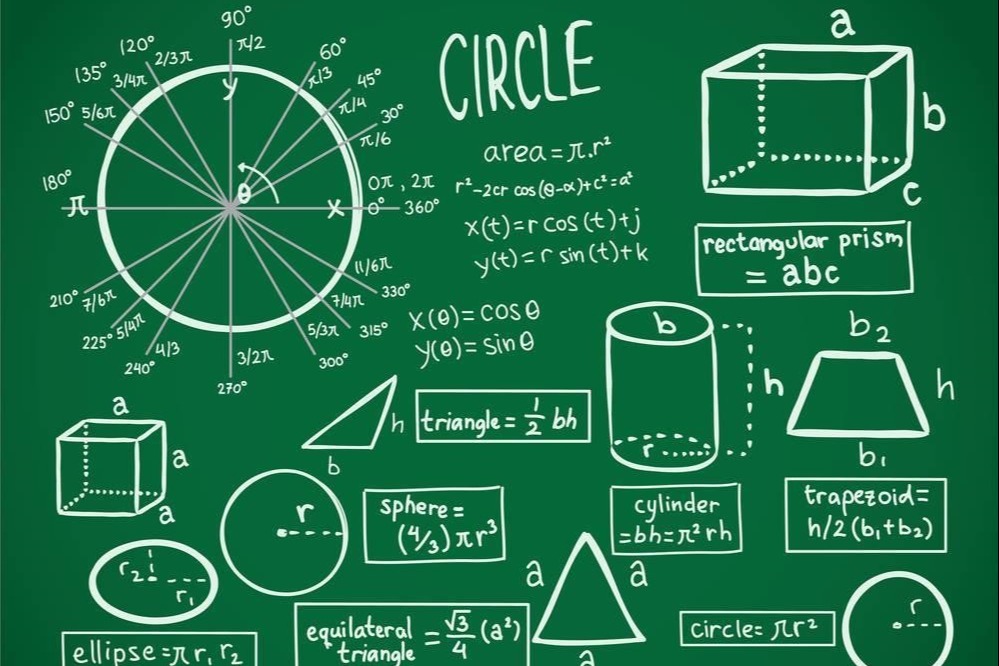 90°
π/2
120°
2/3π
60°
π/3
135°
3/4π
45°
π/4
150°
5/6π
30°
π/6
y
θ
180°
π
x
0π, 2π
0°
360°
210°
7/6π
11/6π
330°
225°
5/4π
7/4π
315°
240°
4/3
5/3π
300°
3/2π
270°
CIRCLE
area=π.r²
r²-2cr cos(θ-α)+c²=a²
x(t)=r cos(t)+j
y(t)=r sin(t)+k
x(θ)=cosθ
y(θ)=sinθ
a
b
c
rectangular prism
= abc
b
h
r
cylinder
=bh=π²rh
b₂
h
b₁
trapezoid=
h/2(b₁+b₂)
h
b
triangle= 1/2 bh
a
a
a
r
sphere=
(4/3)πr³
r₂
r₁
ellipse=πr₁r₂
equilateral
triangle
= √3/4 (a²)
a
a
a
circle=πr²
r